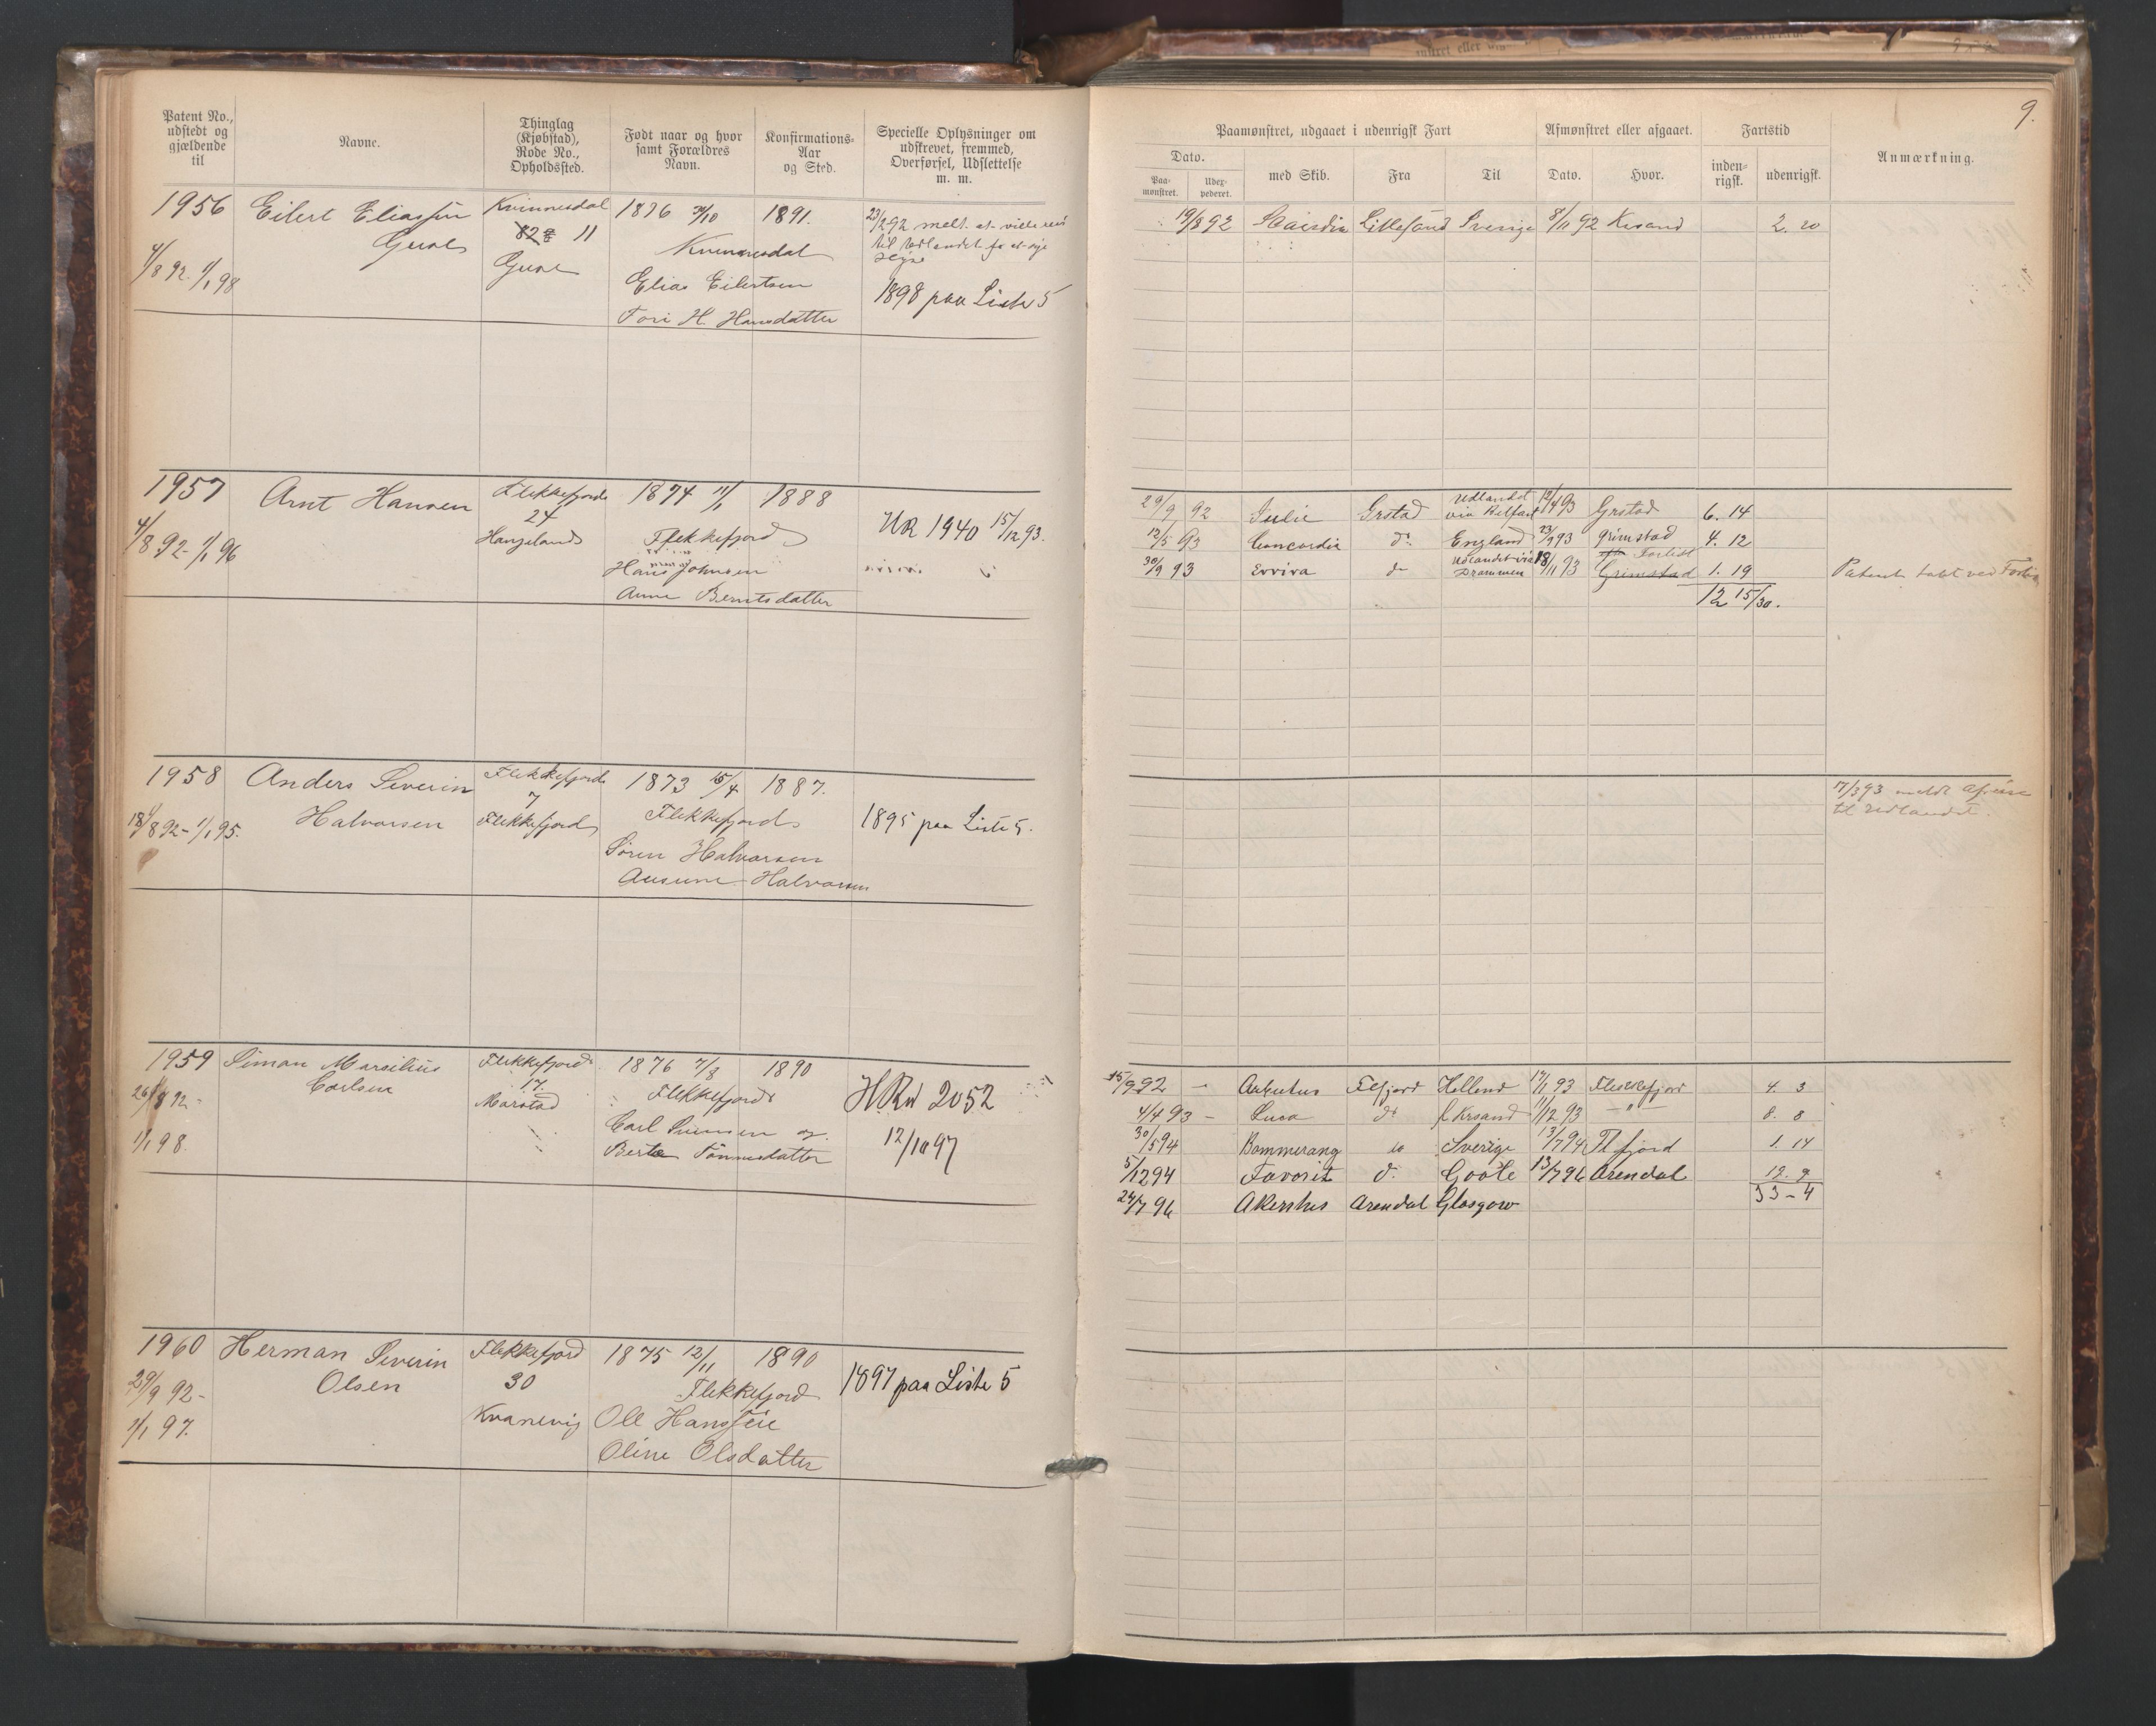 9.
Patent No., udstedt og gjældende til
Navne.
Thinglag (Kjøbstad), Rode No., Opholdssted.
Født naar og hvor samt Forældres Navn.
Konfirmations-Aar og Sted.
Specielle Oplysninger om udskrevet, fremmed, Overførsel, Udslettelse m. m.
Paamønstret, udgaaet i udenrigsk Fart
Afmønstret eller afgaaet.
Fartstid
Anmærkning.
Dato.
Paa-mønstret.
Udex-pederet.
med Skib.
Fra
Til
Dato.
Hvor.
inden-rigsk.
udenrigsk.
1956 Eilert Eliassen Kvinnesdal 1876 1891.
11
Kvinnesdal
4/8 92. 1/1 98
Elias Eilertsen
Tori H. Hansdatter
23/292 melt at ville
til Udlandet for at
1898 paa Liste 5
19/8 92 Lillesand Sverige 8/11 92 Krsand 2. 20
1957 Arnt Hansen Flekkefjord 1874 11/1 1888
24
4/8 92 - 1/1 96 Hangeland Flekkefjord
HR 1940 15/12 93.
Hans Johnsen
Anne Berntsdatter
29/9 92 Julie Grstad Udlandet via Belfast 12/4 93 Grstad 6. 14
12/5 93 Concordia do England 23/9 93 Grimstad 4. 12
30/9 93 Evviva do Udlandet via Drammen 18/11 93 Grimstad Forlist 1. 19
12 15/30.
Patent tabt ved Forlis
1958 Anders Severin Flekkefjord 1873 15/4 1887.
7
Halvorsen Flekkefjord Flekkefjord
18/8 92 - 1/1 95.
1895 paa Liste 5.
Søren Halvorsen
Halvorsen
17/3 93 meldt Afreise
til Udlandet.
1959 Siman Marsilius Flekkefjord 1876 7/8 1890
Carlsen 17.
26/8 92 - Marstad Flekkefjord
HRd 2052
1/1 98. Carl og
12/10 97
Berte Tønnesdatter
15/9 92 - Flfjord Holland 17/1 93 Flekkefjord 4. 3
4/4 93 - Luca do Krsand 11/12 93 - " - 8. 8
30/5 94 Bommerang do Sverige 13/7 94 Flfjord 1. 14
5/12 94 Favorit do Goole 13/7 96 Arendal 19. 9
33 - 4
24/7 96 Akershus Arendal Glasgow
1960 Herman Severin Flekkefjord 1875 12/11 1890
Olsen 30 Flekkefjord
1897 paa Liste 5
29/9 92 -
1/1 97. Kvanevig Ole Hansseie
Oline Olsdatter